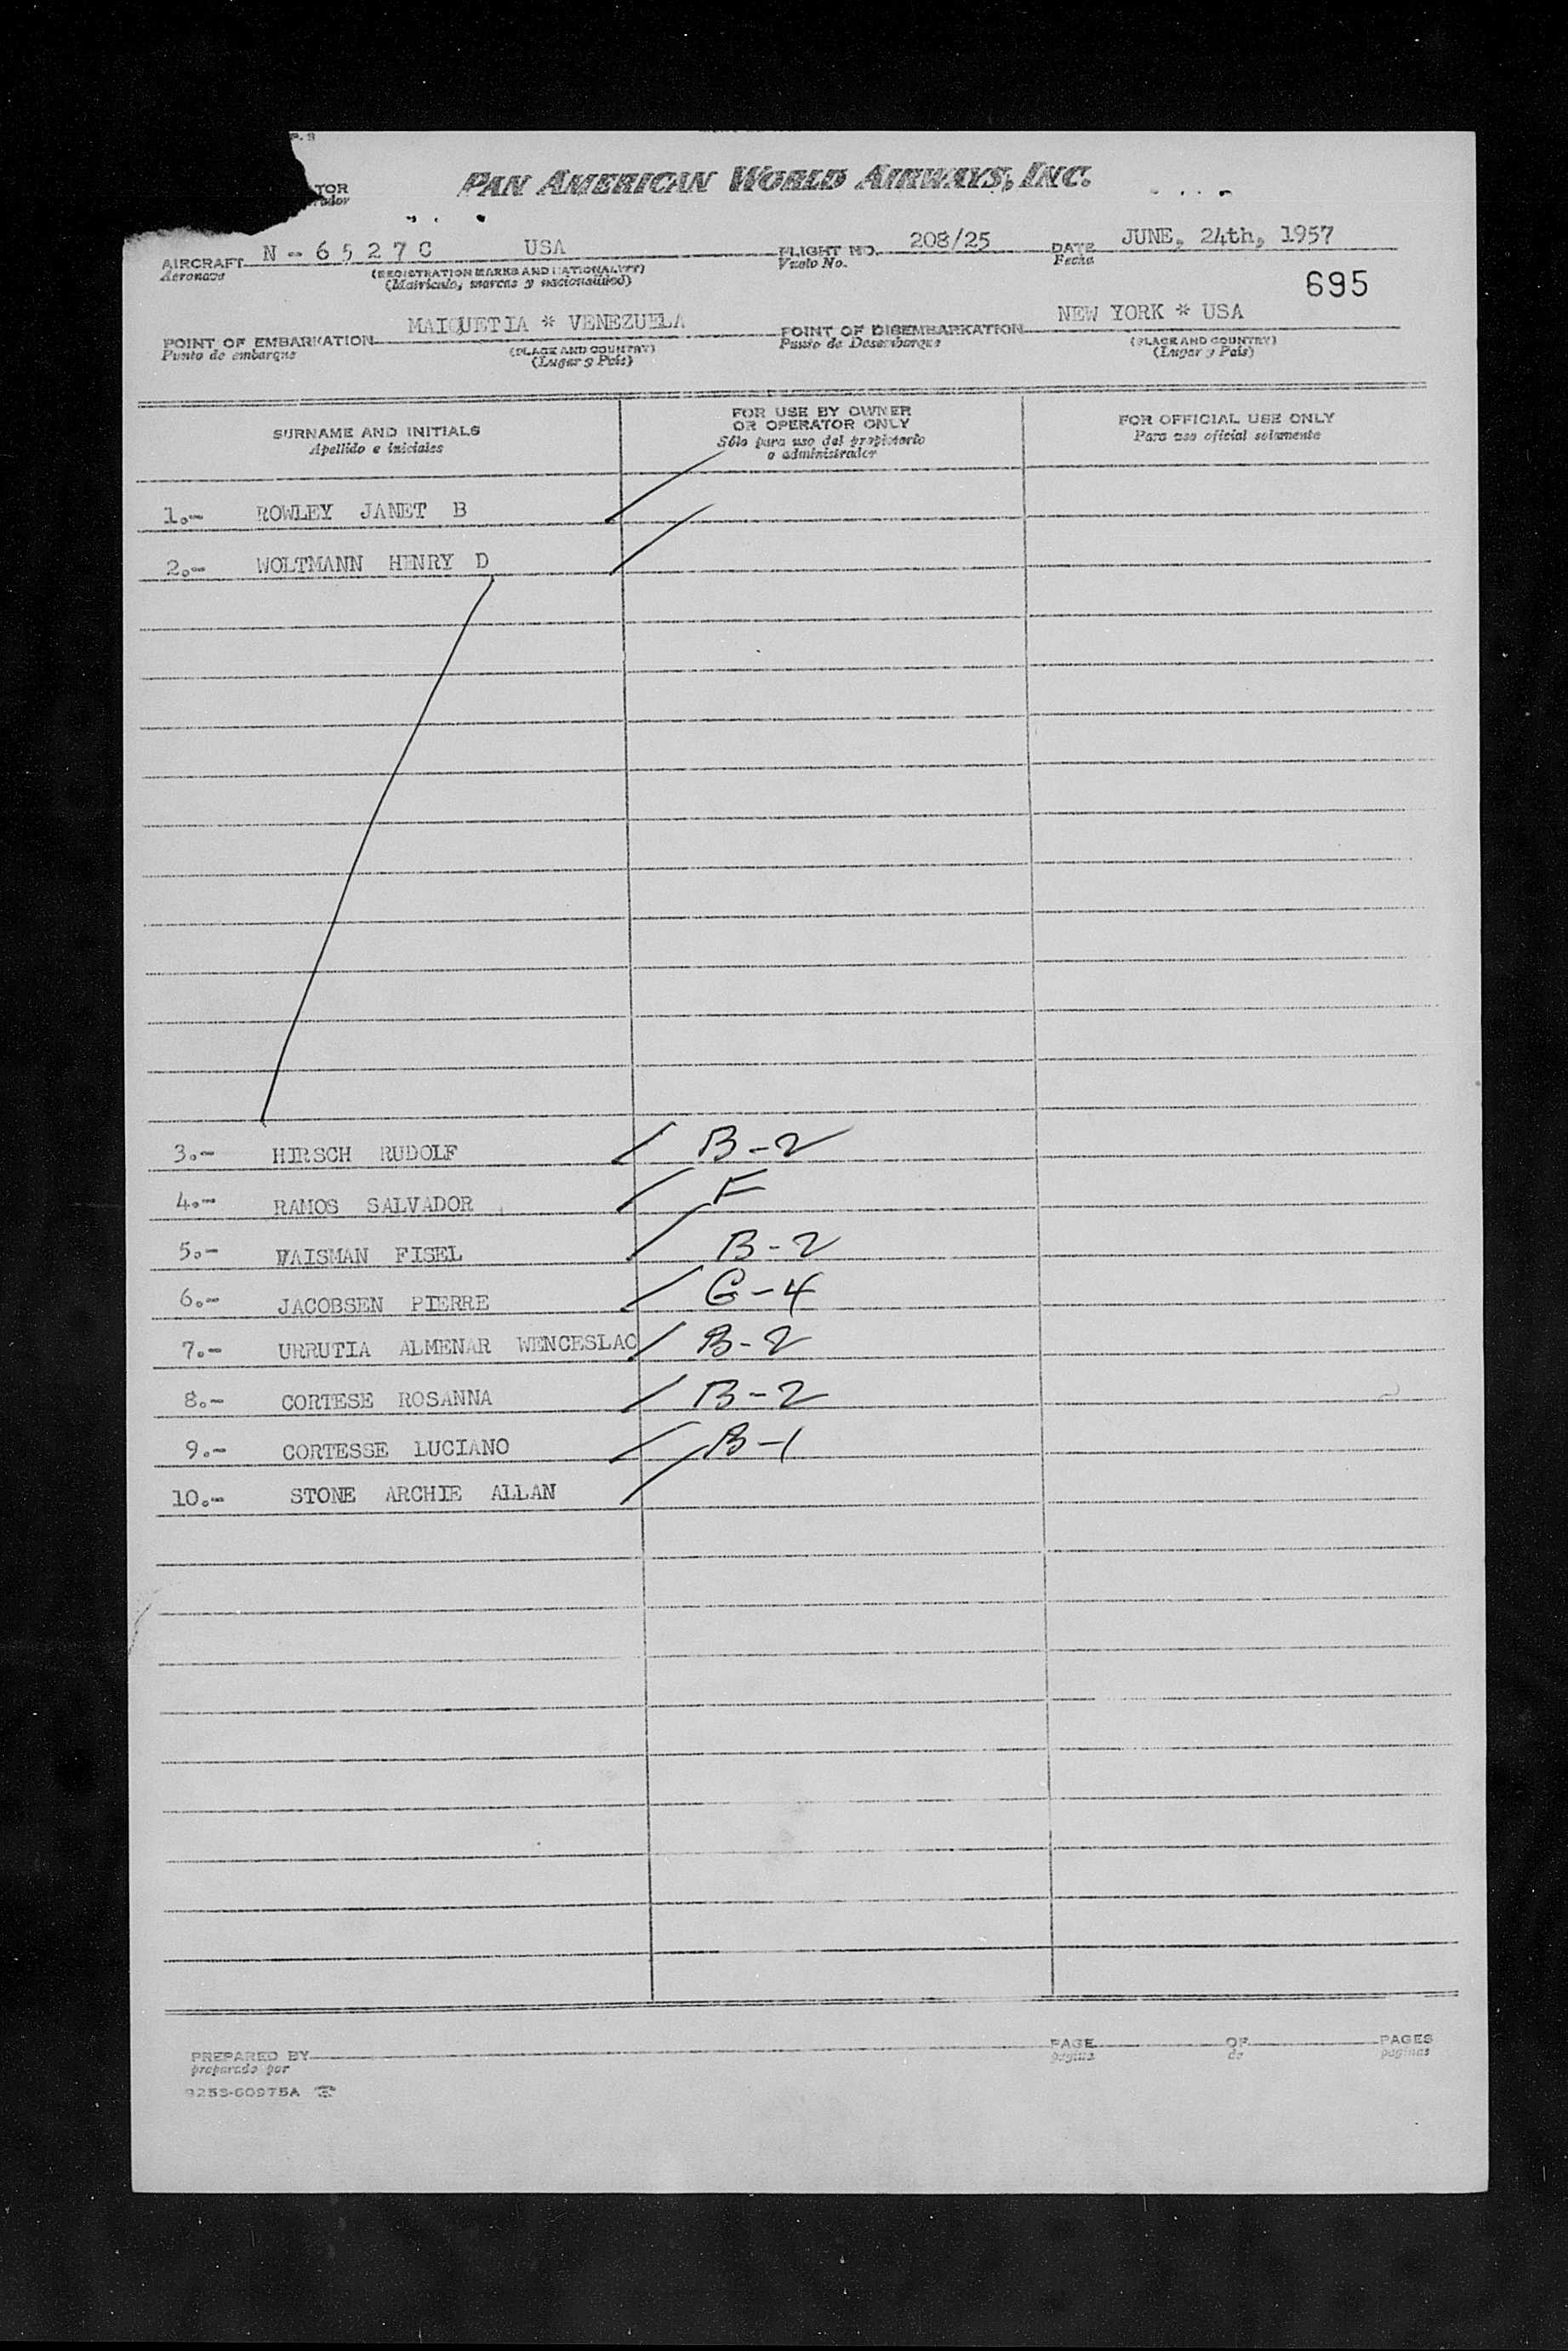 TOR
PAN AMERICAN WORLD AIRWAYS, INC.
AIRCRAFT N-6527C USA FLIGHT NO. 208/25 DATE JUNE, 24th, 1957
Aeronave (REGISTRATION MARKS AND NATIONALITY) Vuelo No. Fecha
(Matrícula, marcas y nacionalidad)
695
POINT OF EMBARKATION MAIQUETIA * VENEZUELA POINT OF DISEMBARKATION NEW YORK * USA
Punto de embarque (PLACE AND COUNTRY) Punto de Desembarque (PLACE AND COUNTRY)
(Lugar y País) (Lugar y País)
SURNAME AND INITIALS
Apellido e iniciales
FOR USE BY OWNER
OR OPERATOR ONLY
Sólo para uso del propietario
o administrador
FOR OFFICIAL USE ONLY
Para uso oficial solamente
1.- ROWLEY JANET B
2.- WOLTMANN HENRY D
3.- HIRSCH RUDOLF / B-2
4.- RAMOS SALVADOR / F
5.- WAISMAN FISEL / B-2
6.- JACOBSEN PIERRE / G-4
7.- URRUTIA ALMENAR WENCESLAO / B-2
8.- CORTESE ROSANNA / B-2
9.- CORTESSE LUCIANO / B-1
10.- STONE ARCHIE ALLAN /
PREPARED BY PAGE OF PAGES
preparado por página de páginas
9253-60975A